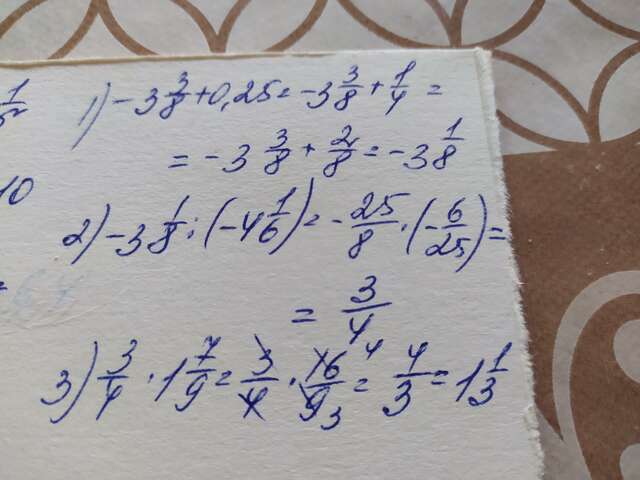 1) -3 3/8 + 0,25 = -3 3/8 + 1/4 =
= -3 3/8 + 2/8 = -3 1/8
2) -3 1/8 : (-4 1/6) = -25/8 · (-6/25) =
= 3/4
3) 3/4 · 1 7/9 = 3/4 · 16/9 4 3 = 4/3 = 1 1/3
10